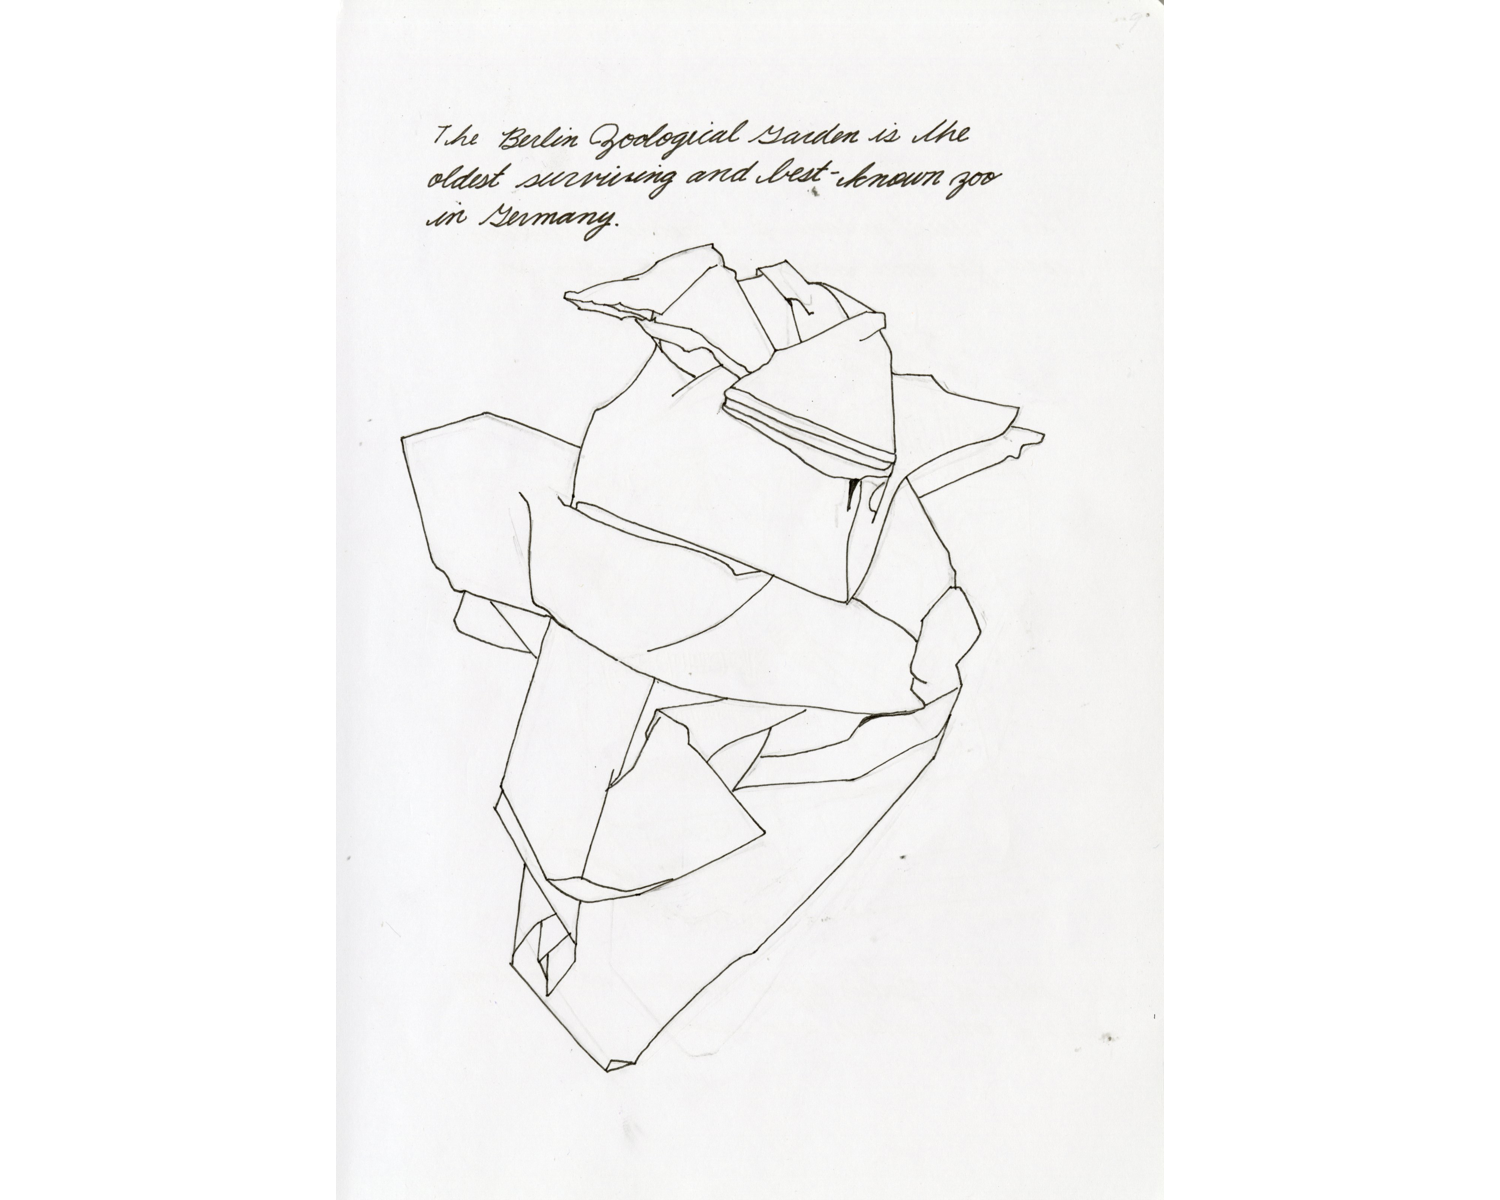 The Berlin Zoological Garden is the
oldest surviving and best-known zoo
in Germany.